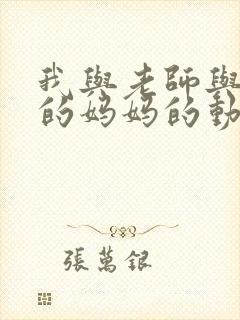 我與老師與
的媽媽的動
張萬銀